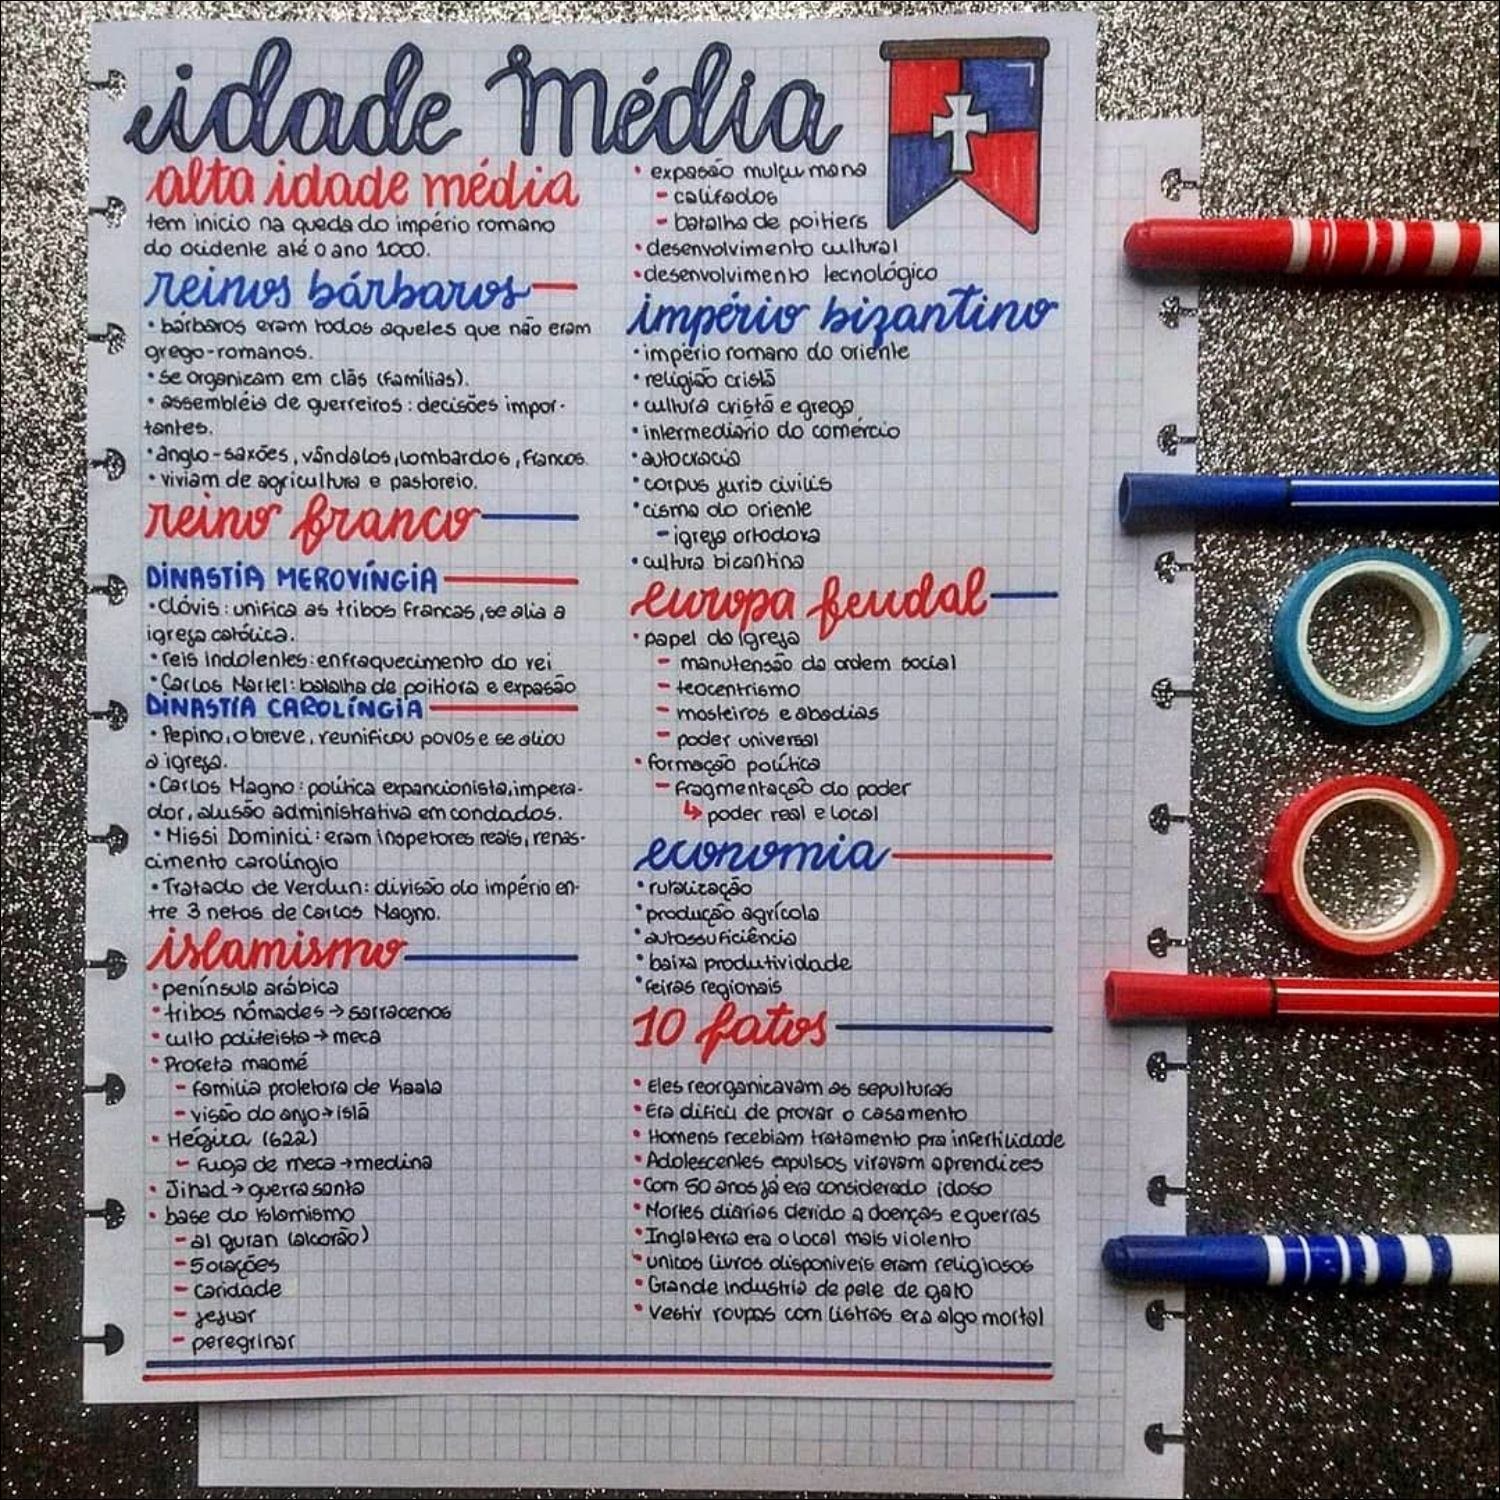 idade Média
alta idade média
tem inicio na queda do império romano
do ocidente até o ano 1000.
reinos bárbaros
• bárbaros eram todos aqueles que não eram
grego-romanos.
• se organizam em clãs (famílias).
• assembléia de guerreiros: decisões impor-
tantes.
• anglo-saxões, vândalos, lombardos, francos.
• viviam de agricultura e pastoreio.
reino franco
DINASTIA MEROVÍNGIA
• Clóvis: unifica as tribos francas, se alia a
igreja católica.
• reis indolentes: enfraquecimento do rei
• Carlos Martel: batalha de poitiora e expasão
DINASTIA CAROLÍNGIA
• Pepino, o breve, reunificou povos e se aliou
a igreja.
• Carlos Magno: política expancionista, impera-
dor, alusão administrativa em condados.
• Missi Dominici: eram inspetores reais, renas-
cimento carolíngio
• Tratado de Verdun: divisão do império en-
tre 3 netos de Carlos Magno.
islamismo
• península arábica
• tribos nômades → sarracenos
• culto politeista → meca
• Profeta maomé
- familia protetora de Kaala
- visão do anjo → islã
• Hégira (622)
- fuga de meca → medina
• Jihad → guerra santa
• base do islamismo
- al quran (alcorão)
- 5 orações
- caridade
- jejuar
- peregrinar
• expasão mulçumana
- califados
- batalha de poitiers
• desenvolvimento cultural
• desenvolvimento tecnológico
império bizantino
• império romano do oriente
• religião cristã
• cultura cristã e grega
• intermediário do comércio
• autocracia
• corpus juris civilis
• cisma do oriente
- igreja ortodoxa
• cultura bizantina
europa feudal
• papel da igreja
- manutensão da ordem social
- teocentrismo
- mosteiros e abadias
- poder universal
• formação política
- fragmentação do poder
↳ poder real e local
economia
• ruralização
• produção agrícola
• autossuficiência
• baixa produtividade
• feiras regionais
10 fatos
• Eles reorganizavam as sepulturas
• Era difícil de provar o casamento
• Homens recebiam tratamento pra infertilidade
• Adolescentes expulsos viravam aprendizes
• Com 50 anos já era considerado idoso
• Mortes diarias devido a doenças e guerras
• Inglaterra era o local mais violento
• unicos livros disponiveis eram religiosos
• Grande industria de pele de gato
• Vestir roupas com listras era algo mortal